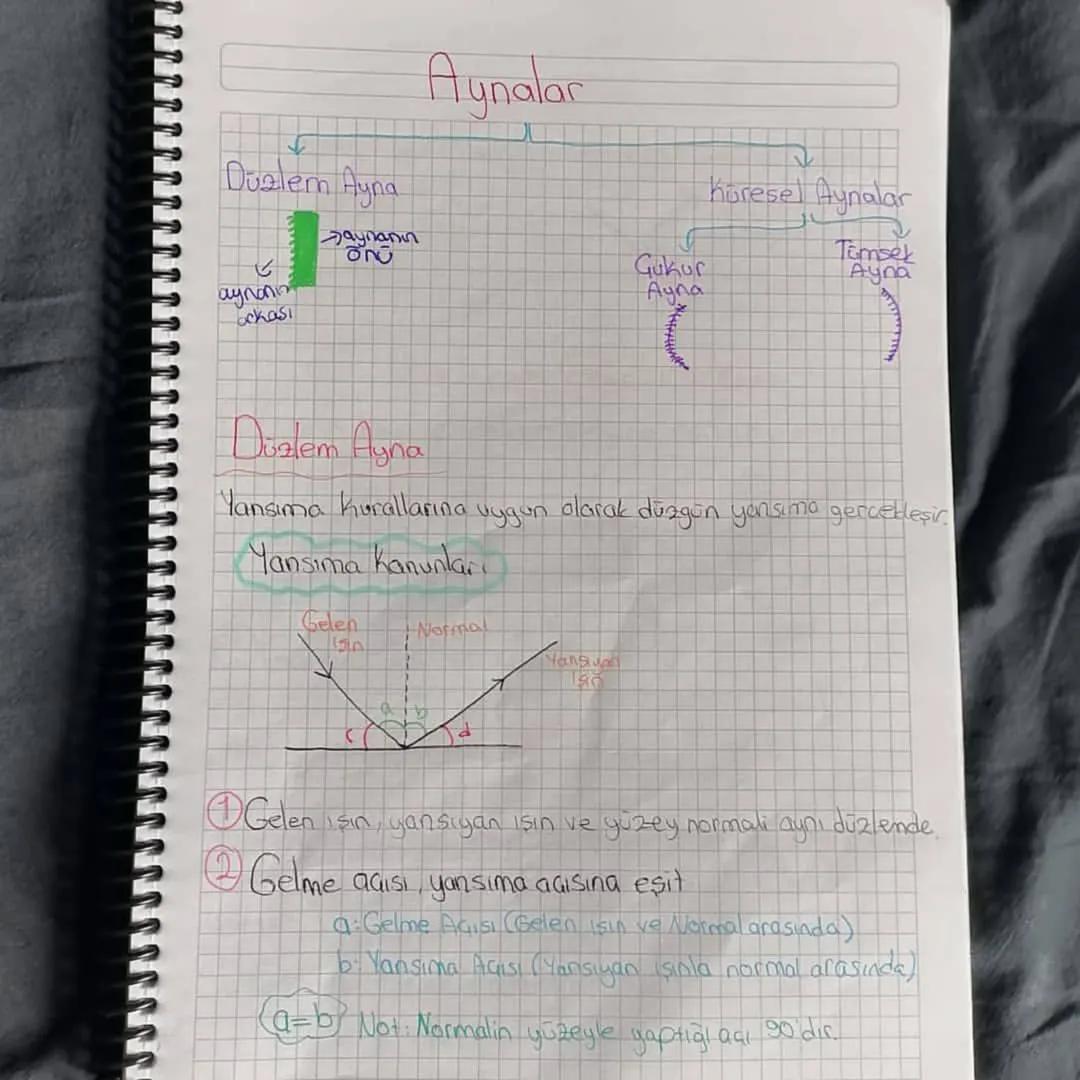 Aynalar
Düzlem Ayna
Küresel Aynalar
→aynanın
önü
aynanın
arkası
Çukur
Ayna
Tümsek
Ayna
Düzlem Ayna
Yansıma Kurallarına uygun olarak düzgün yansıma gerçekleşir.
Yansıma Kanunları
Gelen
Işın
Normal
Yansıyan
Işın
a b
c d
① Gelen ışın, yansıyan ışın ve yüzey normali aynı düzlemde.
② Gelme açısı, yansıma açısına eşit
a: Gelme Açısı (Gelen ışın ve Normal arasında)
b: Yansıma Açısı (Yansıyan ışınla normal arasında)
a=b Not: Normalin yüzeyle yaptığı açı 90'dır.